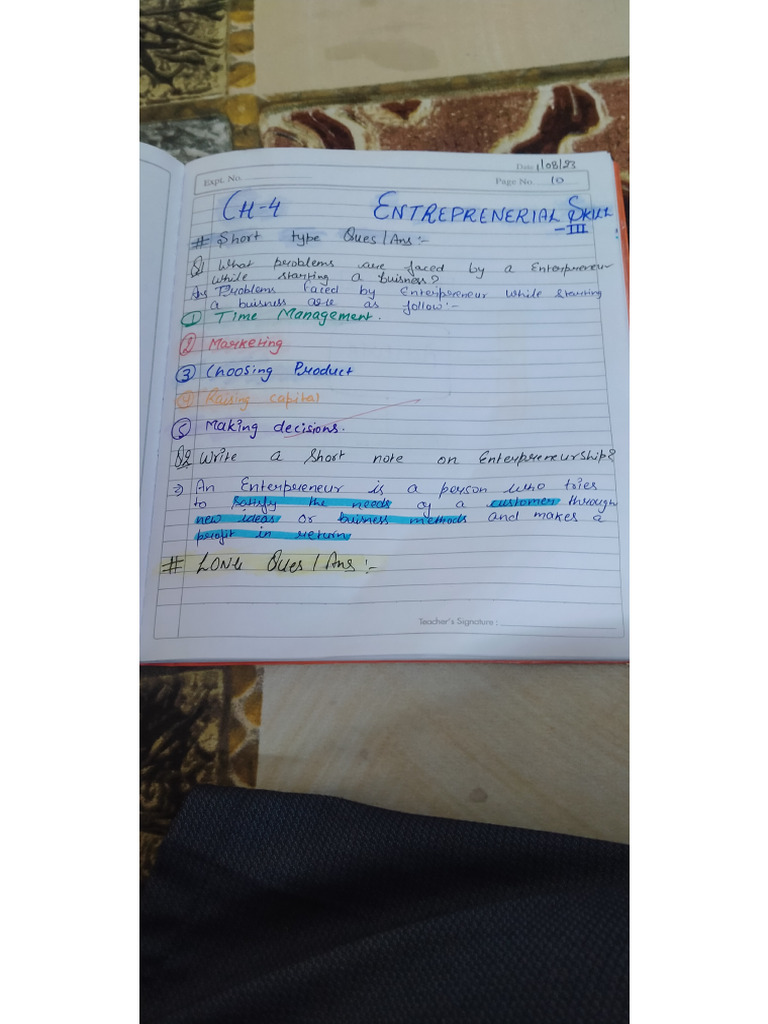 Date 1/08/23
Expt. No.
Page No. 10
CH-4 ENTREPRENERIAL SKILL
-III
# Short type Ques/Ans:-
Q1 What problems are faced by a Enterpreneur
while starting a buisness?
Ans Problems faced by Enterpreneur while starting
a buisness are as follow:-
① Time Management.
② Marketing
③ Choosing Product
④ Raising capital
⑤ Making decisions.
Q2 Write a short note on Enterpreneurship?
⇒ An Enterpreneur is a person who tries
to satisfy the needs of a customer through
new ideas or buisness methods and makes a
profit in return
# LONG Ques/Ans:-
Teacher's Signature :